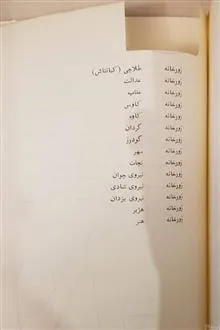 زورخانه طلاچی (کیانتاش)
زورخانه عدالت
زورخانه عقاب
زورخانه کاوس
زورخانه کاوه
زورخانه گردان
زورخانه گودرز
زورخانه مهر
زورخانه نجات
زورخانه نیروی جوان
زورخانه نیروی شادی
زورخانه نیروی یزدان
زورخانه هژبر
زورخانه هنر